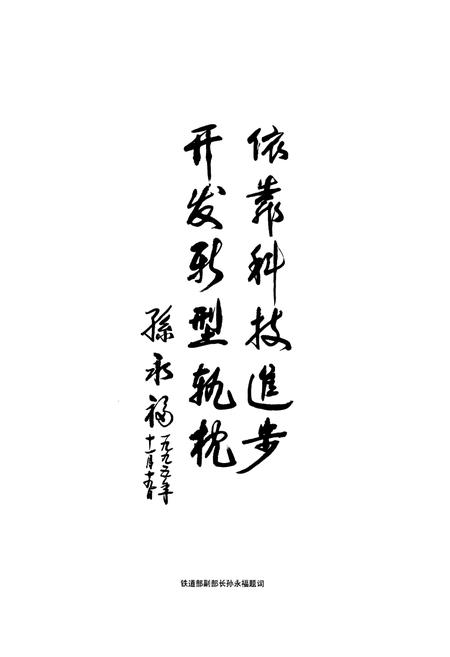 依靠科技進步
开发新型轨枕
孫永福
一九九五年
十一月十五日
铁道部副部长孙永福题词